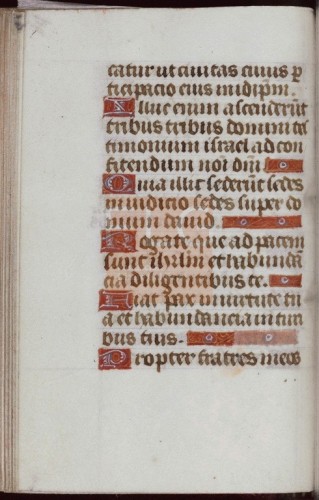 catur ut civitas cuius p̱
ticipacio eius inidip̄m.
Illuc enim ascenderūt
tribus tribus domini tes
timonium israel ad con
fitendum noi dn̄i
Quia illic sederūt sedes
in iudicio sedes super do
mum david.
Rogate que ad pacem
sunt ihrlm̄ et habundā
cia diligentibus te.
Fiat pax in virtute tu
a et habundancia in turi
bus tuis.
Propter fratres meos